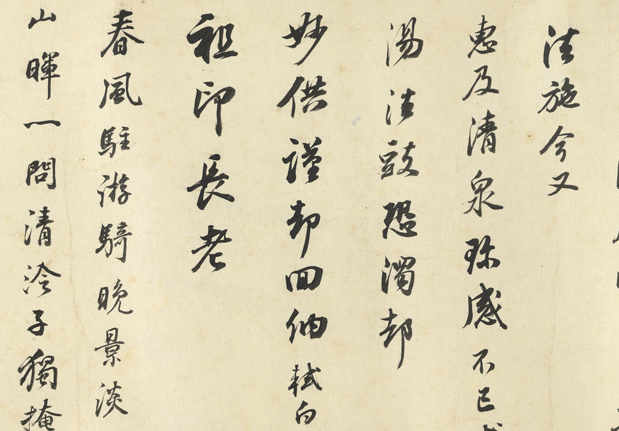 法施今又
惠及清泉珎感不已
湯法豉恐濁却
妙供謹却回納軾白
祖印長老
春風駐游騎晚景淡
山暉一問清泠子獨掩